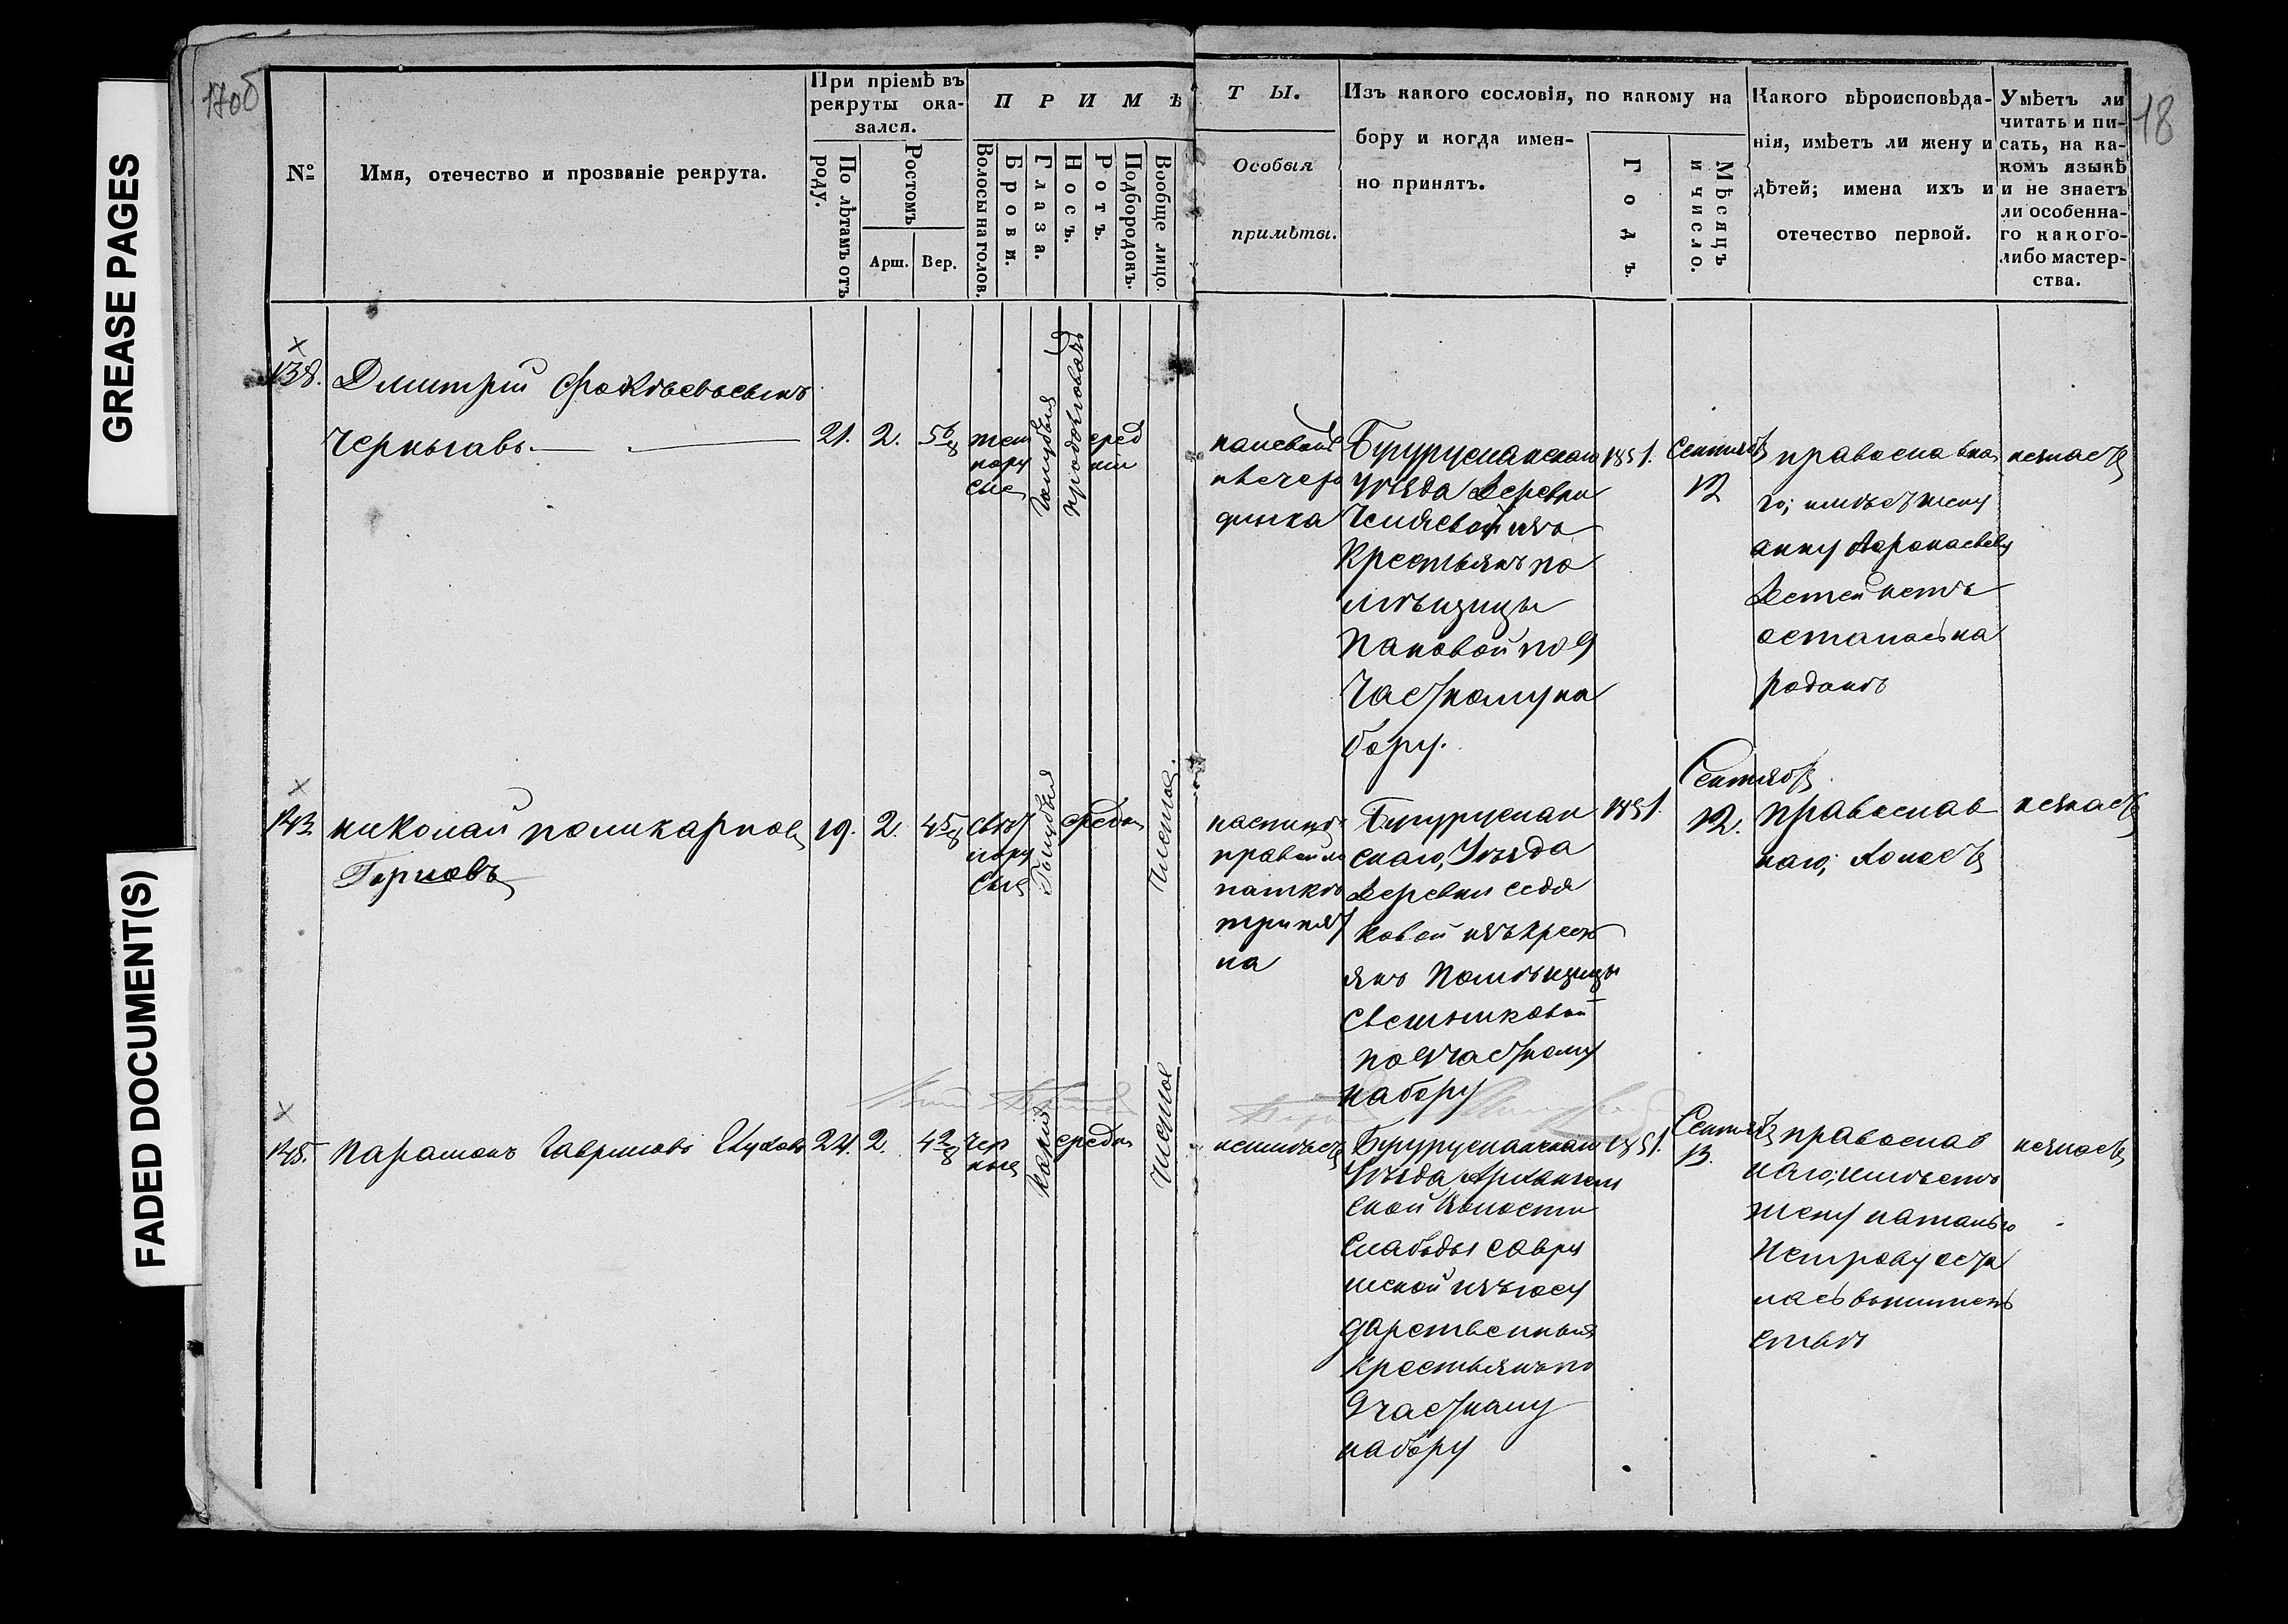 GREASE PAGES
FADED DOCUMENT(S)
17об
18
№
Имя, отечество и прозваніе рекрута.
При пріемѣ въ
рекруты ока-
зался.
По лѣтамъ отъ
роду.
Ростомъ
Арш.
Вер.
ПРИМѢ
Волосы на голов.
Брови.
Глаза.
Носъ.
Ротъ.
Подбородокъ.
Вообще лицо.
ТЫ.
Особыя
примѣты.
Изъ какого сословія, по какому на
бору и когда имен-
но принятъ.
Годъ.
Мѣсяцъ
и число.
Какого вѣроисповѣда-
нія, имѣетъ ли жену и
дѣтей; имена ихъ и
отечество первой.
Умѣетъ ли
читать и пи-
сать, на ка-
комъ языкѣ
и не знаетъ
ли особенна-
го какого-
либо мастер-
ства.
138.
Дмитрій
21. 2. 5 6/8
тем
нору
сые
голубыя
продолговатъ
сред
ній
Бугурусланскаго
уѣзда деревни
изъ
крестьянъ по
мѣщицы
Пановой по 9
частному на
бору.
1851.
Сентяб
12
православна
го; имѣетъ жену
анну
детей нетъ
осталась на
родинѣ
незнаетъ
143
николай поликарпов
Горшовъ
19. 2. 4 5/8
свет
лору
сые
Голубыя
средн
Чистое
правой ло
паткѣ
три пят
на
Бугуруслан
скаго, Уѣзда
деревни седя
ковой изъ крест
янъ помѣщицы
свешниковой
по 9 частному
набору
1851.
Сентяб
12.
православ
наго; холостъ
незнаетъ
145.
парамонъ Гавриловъ Жуковъ
21. 2. 4 2/8
чер
ные
карія
средн
чистое
неимѣетъ
Бугурусланскаго
Уѣзда
ской волости
слабоды
изъ госу
дарственныхъ
крестьянъ по
9 частному
набору
1851.
Сентяб
13.
православ
наго; имѣетъ
жену наталью
Петрову оста
лась вышеть
стве
незнаетъ